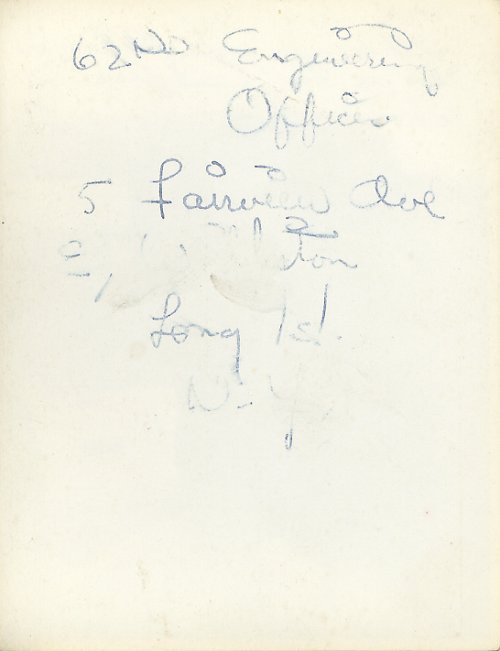 62ND Engineering
Officer
5 Fairview Ave
E,
Long Isl.
N.Y.